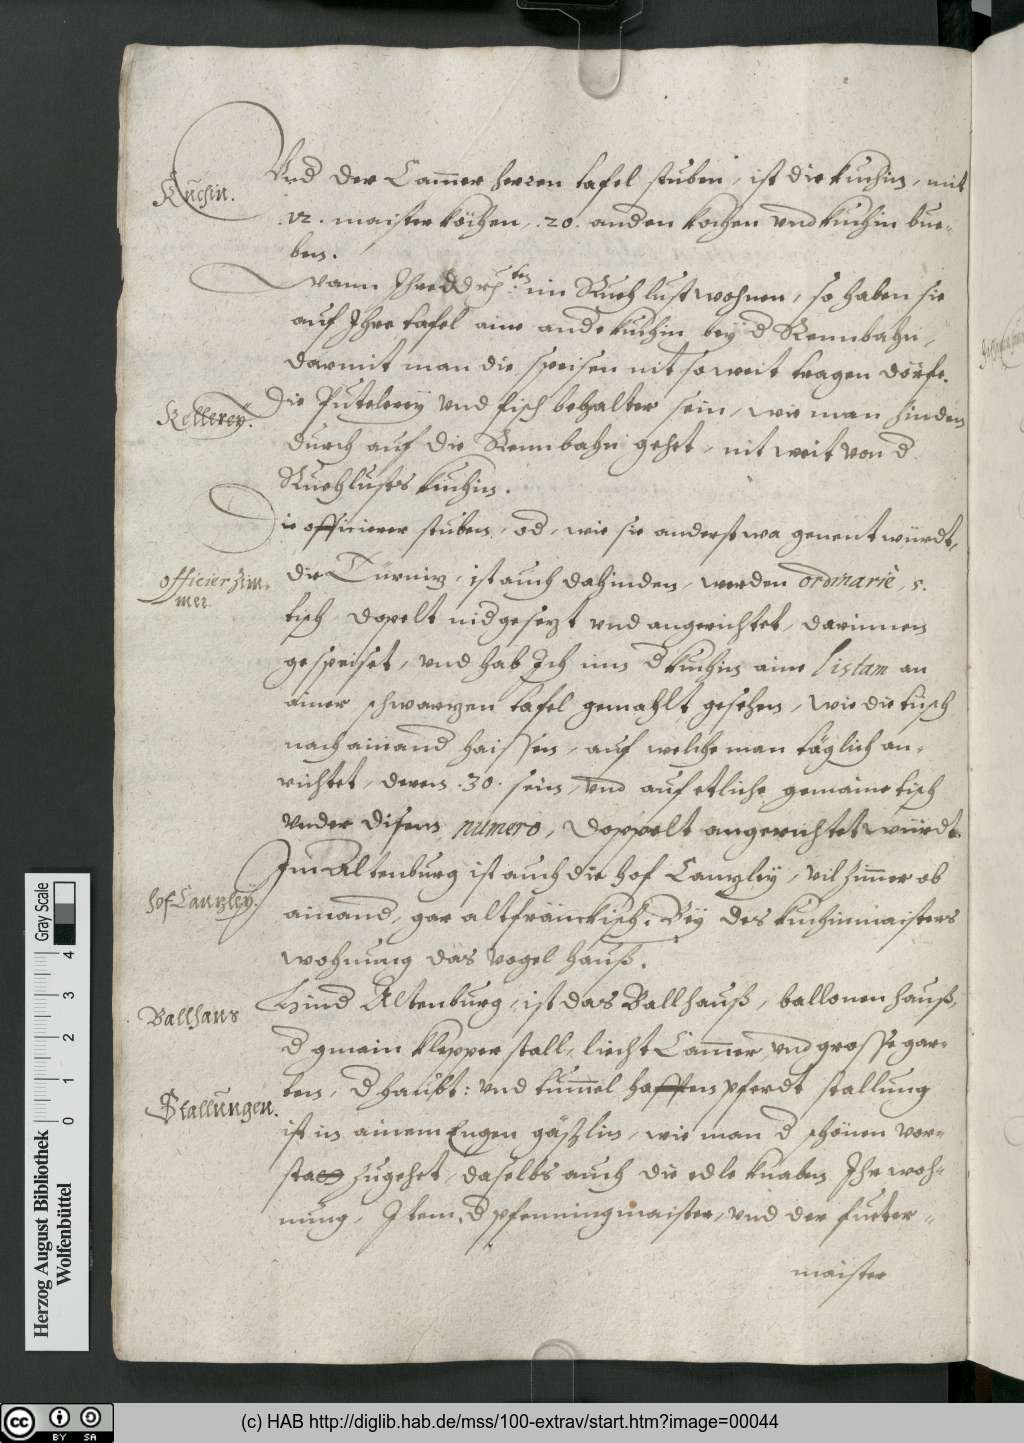 Kuchin.
Vnd der Cam̅er herren tafel stuben, ist die kuchin, mit
12. maister köchen, .20. anden kochen vnd kuchin bue-
ben.
Wann Ihre ddrch: im Rueh lust wohnen, so haben sie
auf Ihre tafel aine ande kuchin beÿ d Rennbahn,
darmit man die speisen nit so weit tragen dörfe.
Kellereÿ.
Die Puteley vnd fisch behalter sein, wie man hinden
durch auf die Rennbahn gehet, nit weit von d
Ruehlusts kuchin.
Die officierer stuben, od, wie sie anderstwa genent würdt,
officier Zim-
mer.
die Türniz, ist auch dahinden, werden ordinariè, 5.
tisch, dopelt nidgesezt vnd angerichtet, darinnen
gespeiset, vnd hab Ich inn d kuchin aine listam an
ainer schwarzen tafel gemahlt gesehen, wie die tisch
nach ainand haissen, auf welche man täglich an-
richtet, deren .30. sein, vnd auf etliche gemaine tisch
vnder disem numero, doppelt angerichtet würdt.
hof-Canzleÿ.
Im Altenburg ist auch die hof Canzleÿ, vil Zim̅er ob
ainand, gar altfränckisch. Beÿ des kuchinmaisters
wohnung das vogel hauß.
Ballhaus
Hind Altenburg, ist das Ballhauß, ballonen hauß,
d gmain klepper stall, liecht Cam̅er vnd grosse gar-
Stallungen.
ten, d haubt: vnd tum̅el pferdt stallung
ist in ainem Engen gäßlin, wie man d schönen vor-
statt zugehet, daselbs auch die edle knaben Ihr woh-
nung, Item, d pfenningmaister, vnd der fueter-
maister
Herzog August Bibliothek
Wolfenbüttel
0 1 2 3 4
Gray Scale
cc BY SA
(c) HAB http://diglib.hab.de/mss/100-extrav/start.htm?image=00044